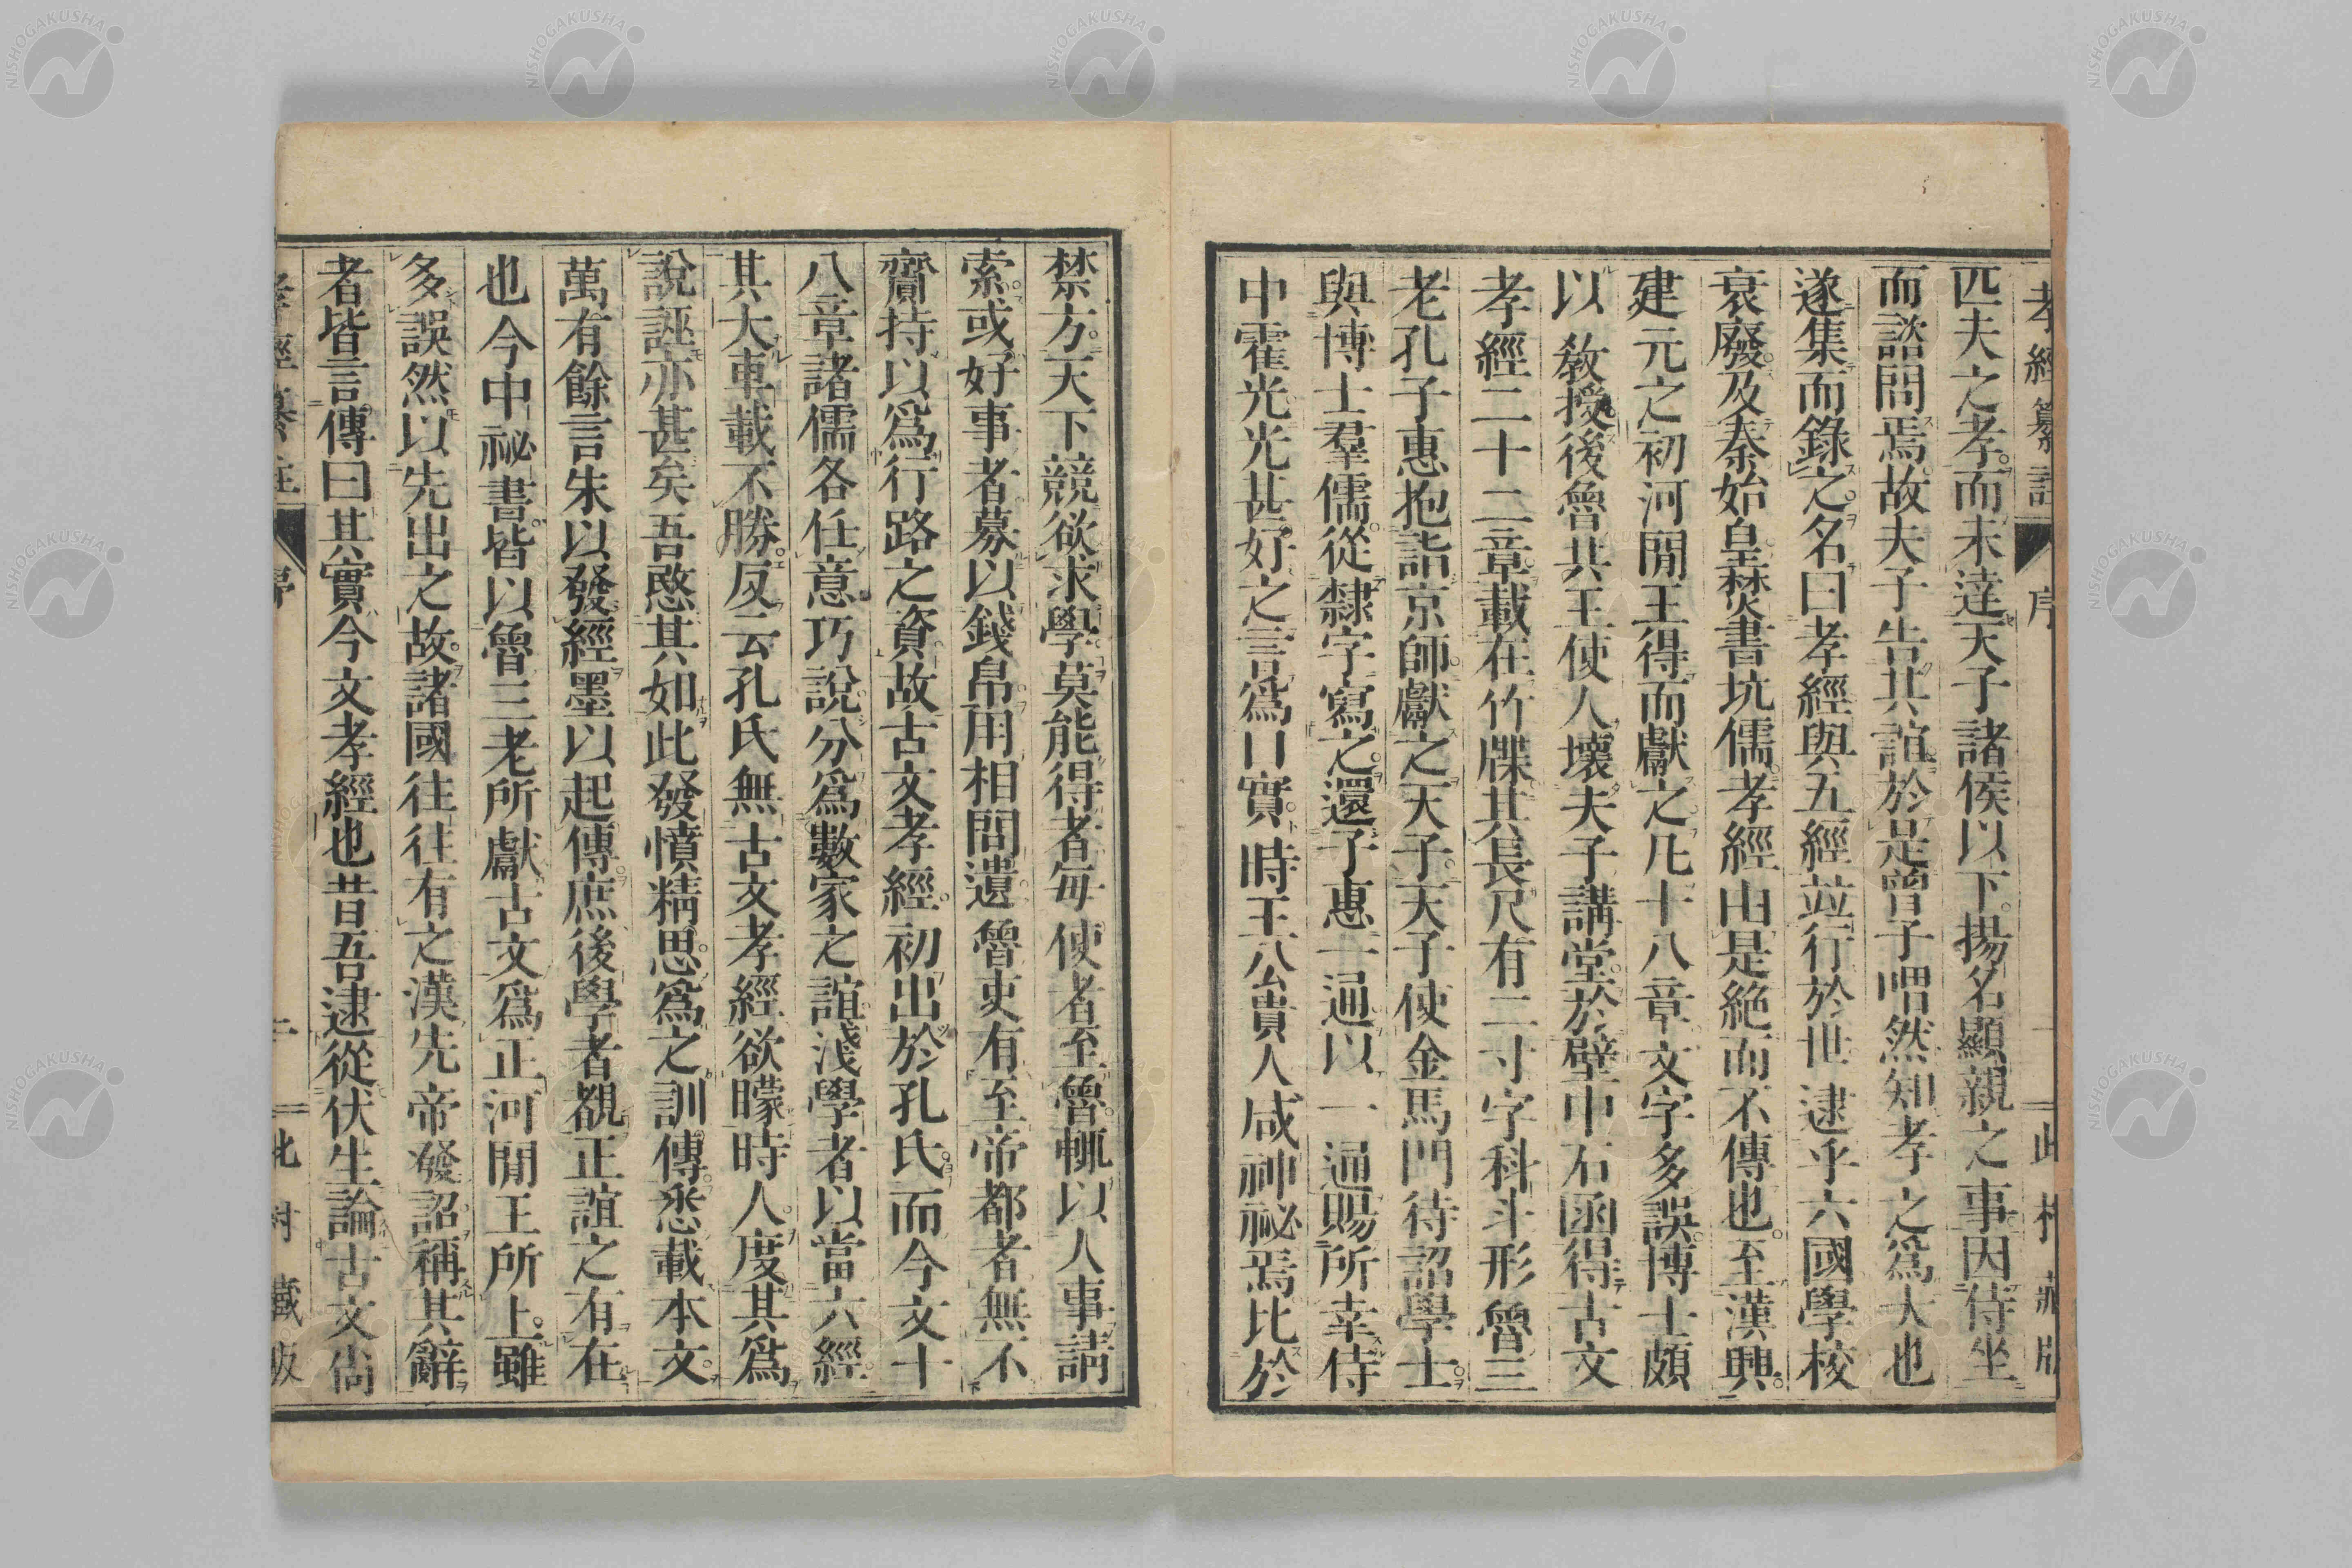 孝經纂註 序 一 此村藏版
匹夫之孝而未達天子諸侯以下揚名顯親之事因侍坐
而諮問焉故夫子告其誼於是曾子喟然知孝之爲大也
遂集而錄之名曰孝經與五經竝行於世逮乎六國學校
衰廢及秦始皇焚書坑儒孝經由是絶而不傳也至漢興
建元之初河閒王得而獻之凡十八章文字多誤博士頗
以教授後魯共王使人壞夫子講堂於壁中石函得古文
孝經二十二章載在竹牒其長尺有二寸字科斗形魯三
老孔子惠抱詣京師獻之天子天子使金馬門待詔學士
與博士羣儒從隸字寫之還子惠一通以一通賜所幸侍
中霍光光甚好之言爲口實時王公貴人咸神祕焉比於
禁方天下競欲求學莫能得者每使者至魯輒以人事請
索或好事者募以錢帛用相問遺魯吏有至帝都者無不
齎持以爲行路之資故古文孝經初出於孔氏而今文十
八章諸儒各任意巧說分爲數家之誼淺學者以當六經
其大車載不勝反云孔氏無古文孝經欲矇時人度其爲
說誣亦甚矣吾愍其如此發憤精思爲之訓傳悉載本文
萬有餘言朱以發經墨以起傳庶後學者覩正誼之有在
也今中祕書皆以魯三老所獻古文爲正河閒王所上雖
多誤然以先出之故諸國往往有之漢先帝發詔稱其辭
者皆言傳曰其實今文孝經也昔吾逮從伏生論古文尚
孝經纂註 序 二 此村藏版
NISHOGAKUSHA
NISHOGAKUSHA
NISHOGAKUSHA
NISHOGAKUSHA
NISHOGAKUSHA
NISHOGAKUSHA
NISHOGAKUSHA
NISHOGAKUSHA
NISHOGAKUSHA